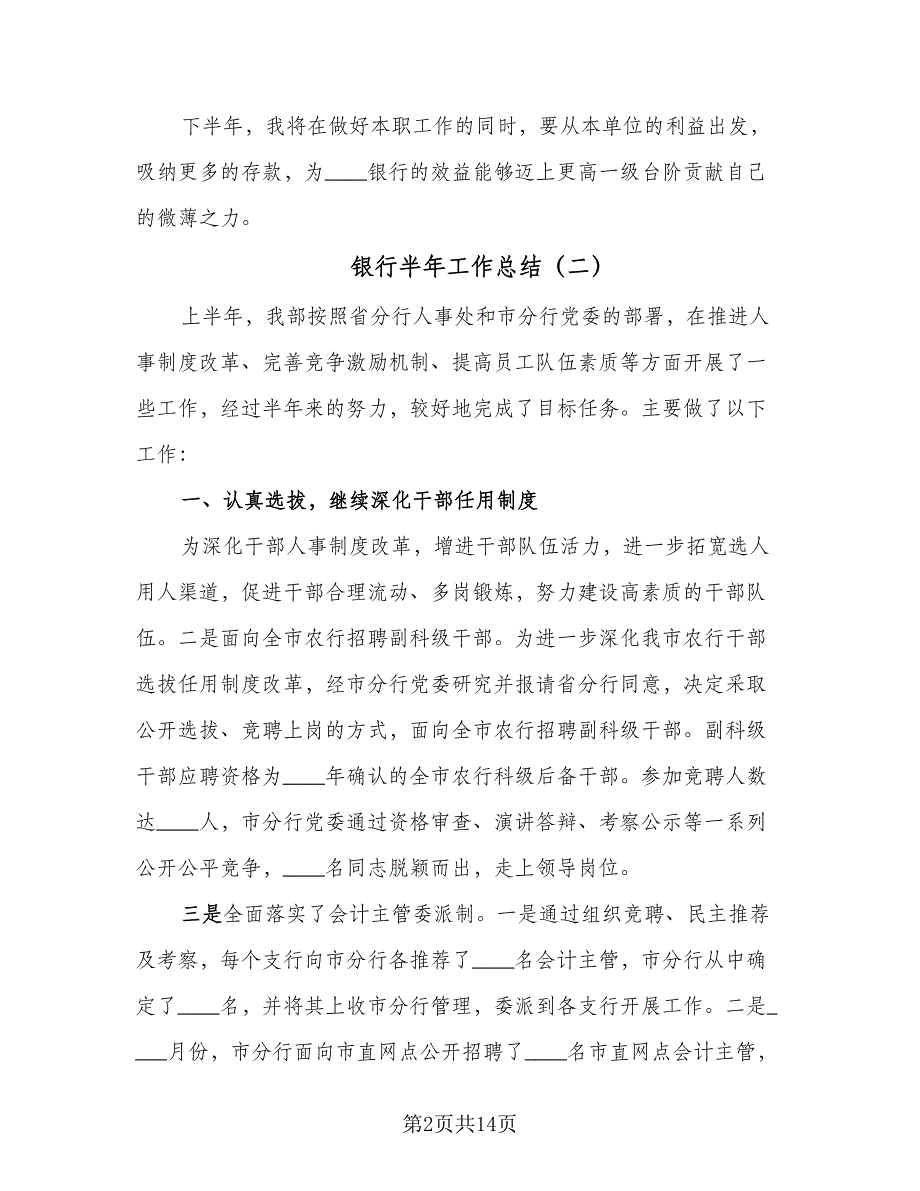 下半年，我将在做好本职工作的同时，要从本单位的利益出发，
吸纳更多的存款，为____银行的效益能够迈上更高一级台阶贡献自己
的微薄之力。
银行半年工作总结（二）
上半年，我部按照省分行人事处和市分行党委的部署，在推进人
事制度改革、完善竞争激励机制、提高员工队伍素质等方面开展了一
些工作，经过半年来的努力，较好地完成了目标任务。主要做了以下
工作：
一、认真选拔，继续深化干部任用制度
为深化干部人事制度改革，增进干部队伍活力，进一步拓宽选人
用人渠道，促进干部合理流动、多岗锻炼，努力建设高素质的干部队
伍。二是面向全市农行招聘副科级干部。为进一步深化我市农行干部
选拔任用制度改革，经市分行党委研究并报请省分行同意，决定采取
公开选拔、竞聘上岗的方式，面向全市农行招聘副科级干部。副科级
干部应聘资格为____年确认的全市农行科级后备干部。参加竞聘人数
达____人，市分行党委通过资格审查、演讲答辩、考察公示等一系列
公开公平竞争，____名同志脱颖而出，走上领导岗位。
三是全面落实了会计主管委派制。一是通过组织竞聘、民主推荐
及考察，每个支行向市分行各推荐了____名会计主管，市分行从中确
定了____名，并将其上收市分行管理，委派到各支行开展工作。二是_
___月份，市分行面向市直网点公开招聘了____名市直网点会计主管，
第2页共14页